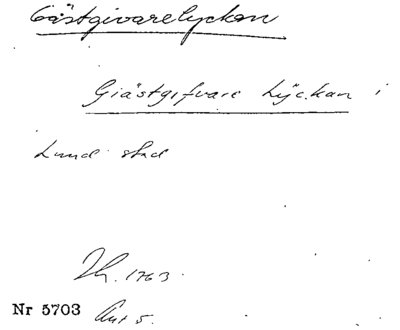 Gästgivarelyckan
Giästgifvare Lyckan i
Lund stad
1763.
Nr 5703
Akt 5.